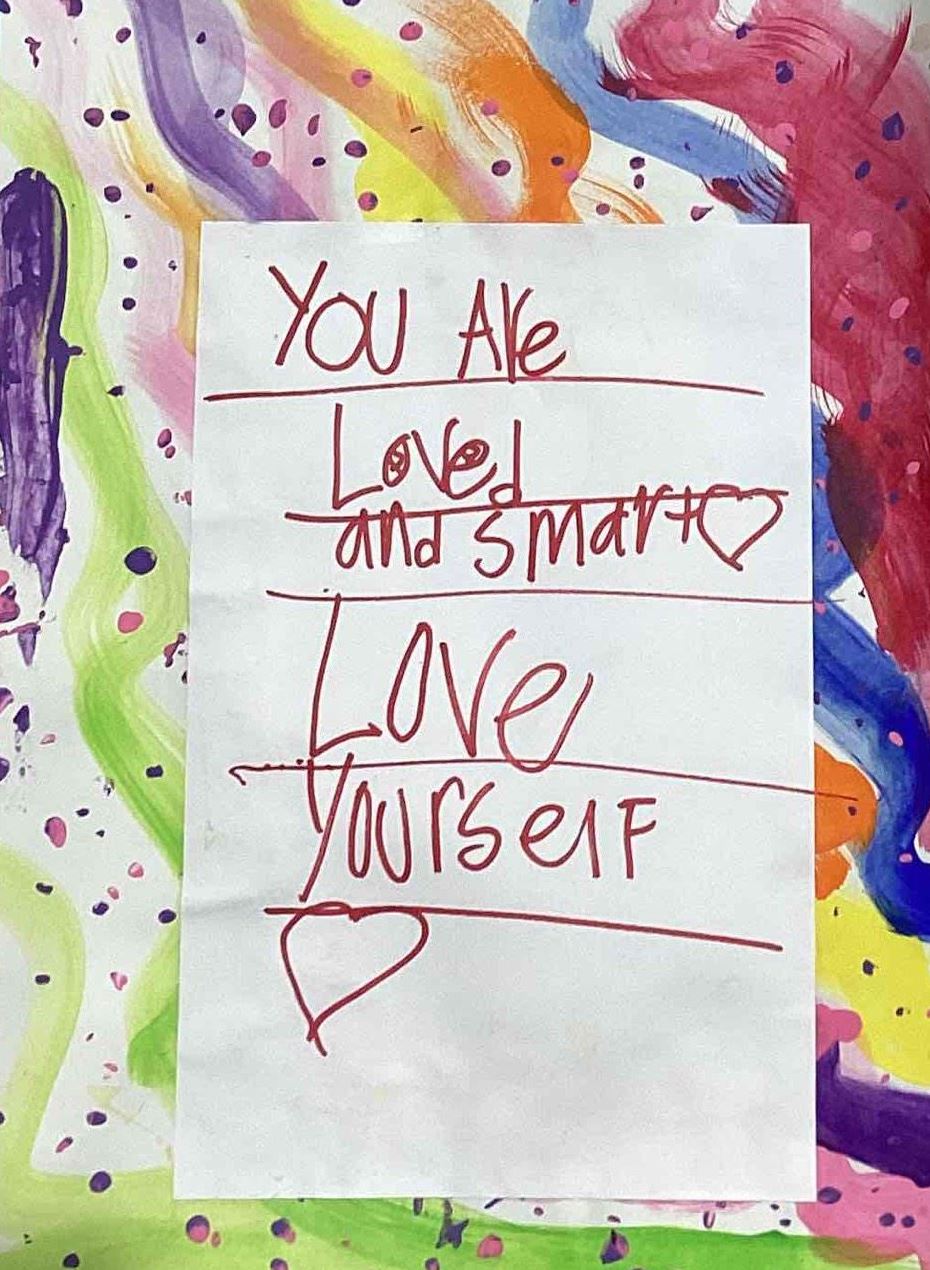 YOU Are
Loved
and smart♡
Love
YourselF
♡